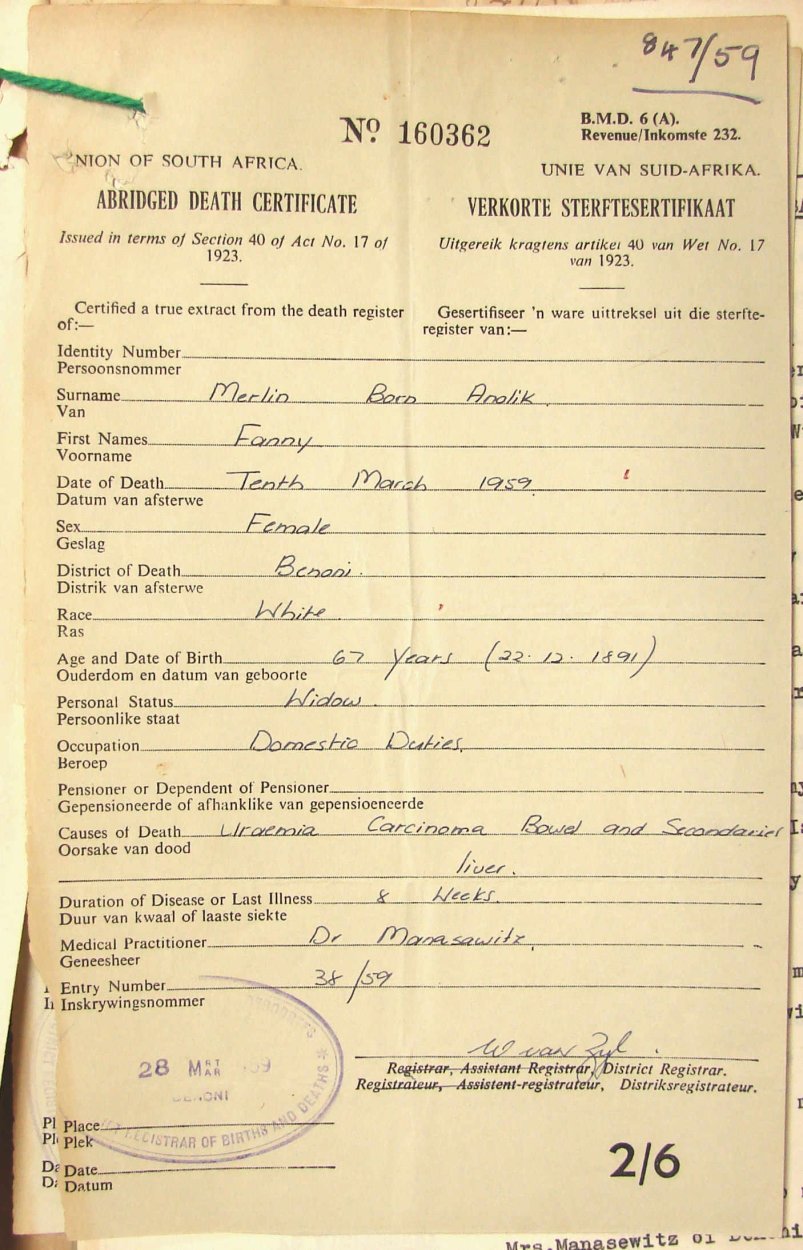 847/59
Nº 160362
B.M.D. 6 (A).
Revenue/Inkomste 232.
NION OF SOUTH AFRICA.
UNIE VAN SUID-AFRIKA.
ABRIDGED DEATH CERTIFICATE
VERKORTE STERFTESERTIFIKAAT
Issued in terms of Section 40 of Act No. 17 of
1923.
Uitgereik kragtens artikel 40 van Wet No. 17
van 1923.
Certified a true extract from the death register
of:—
Gesertifiseer 'n ware uittreksel uit die sterfte-
register van:—
Identity Number
Persoonsnommer
Surname Merlin Born Anolik
Van
First Names Fanny
Voorname
Date of Death Tenth March 1959
Datum van afsterwe
Sex Female
Geslag
District of Death Benoni.
Distrik van afsterwe
Race White.
Ras
Age and Date of Birth 67 Years (22.12.1891)
Ouderdom en datum van geboorte
Personal Status Widow.
Persoonlike staat
Occupation Domestic Duties.
Beroep
Pensioner or Dependent of Pensioner
Gepensioneerde of afhanklike van gepensioeneerde
Causes of Death Uraemia Carcinoma Bowel and Secondaries
Oorsake van dood
liver.
Duration of Disease or Last Illness 8 Weeks.
Duur van kwaal of laaste siekte
Medical Practitioner Dr Manasawitz.
Geneesheer
Entry Number 38/59
Inskrywingsnommer
W van Zyl.
Registrar, Assistant Registrar, District Registrar.
Registrateur, Assistent-registrateur, Distriksregistrateur.
28 MRT MAR 59
BENONI
REGISTRAR OF BIRTHS AND DEATHS
Place
Plek
Date
Datum
2/6
Mrs. Manasewitz of